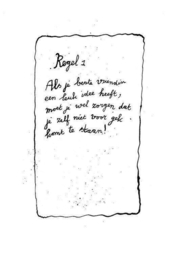 Regel 1
Als je beste vriendin
een leuk idee heeft,
moet je wel zorgen dat
je zelf niet voor gek
komt te staan!